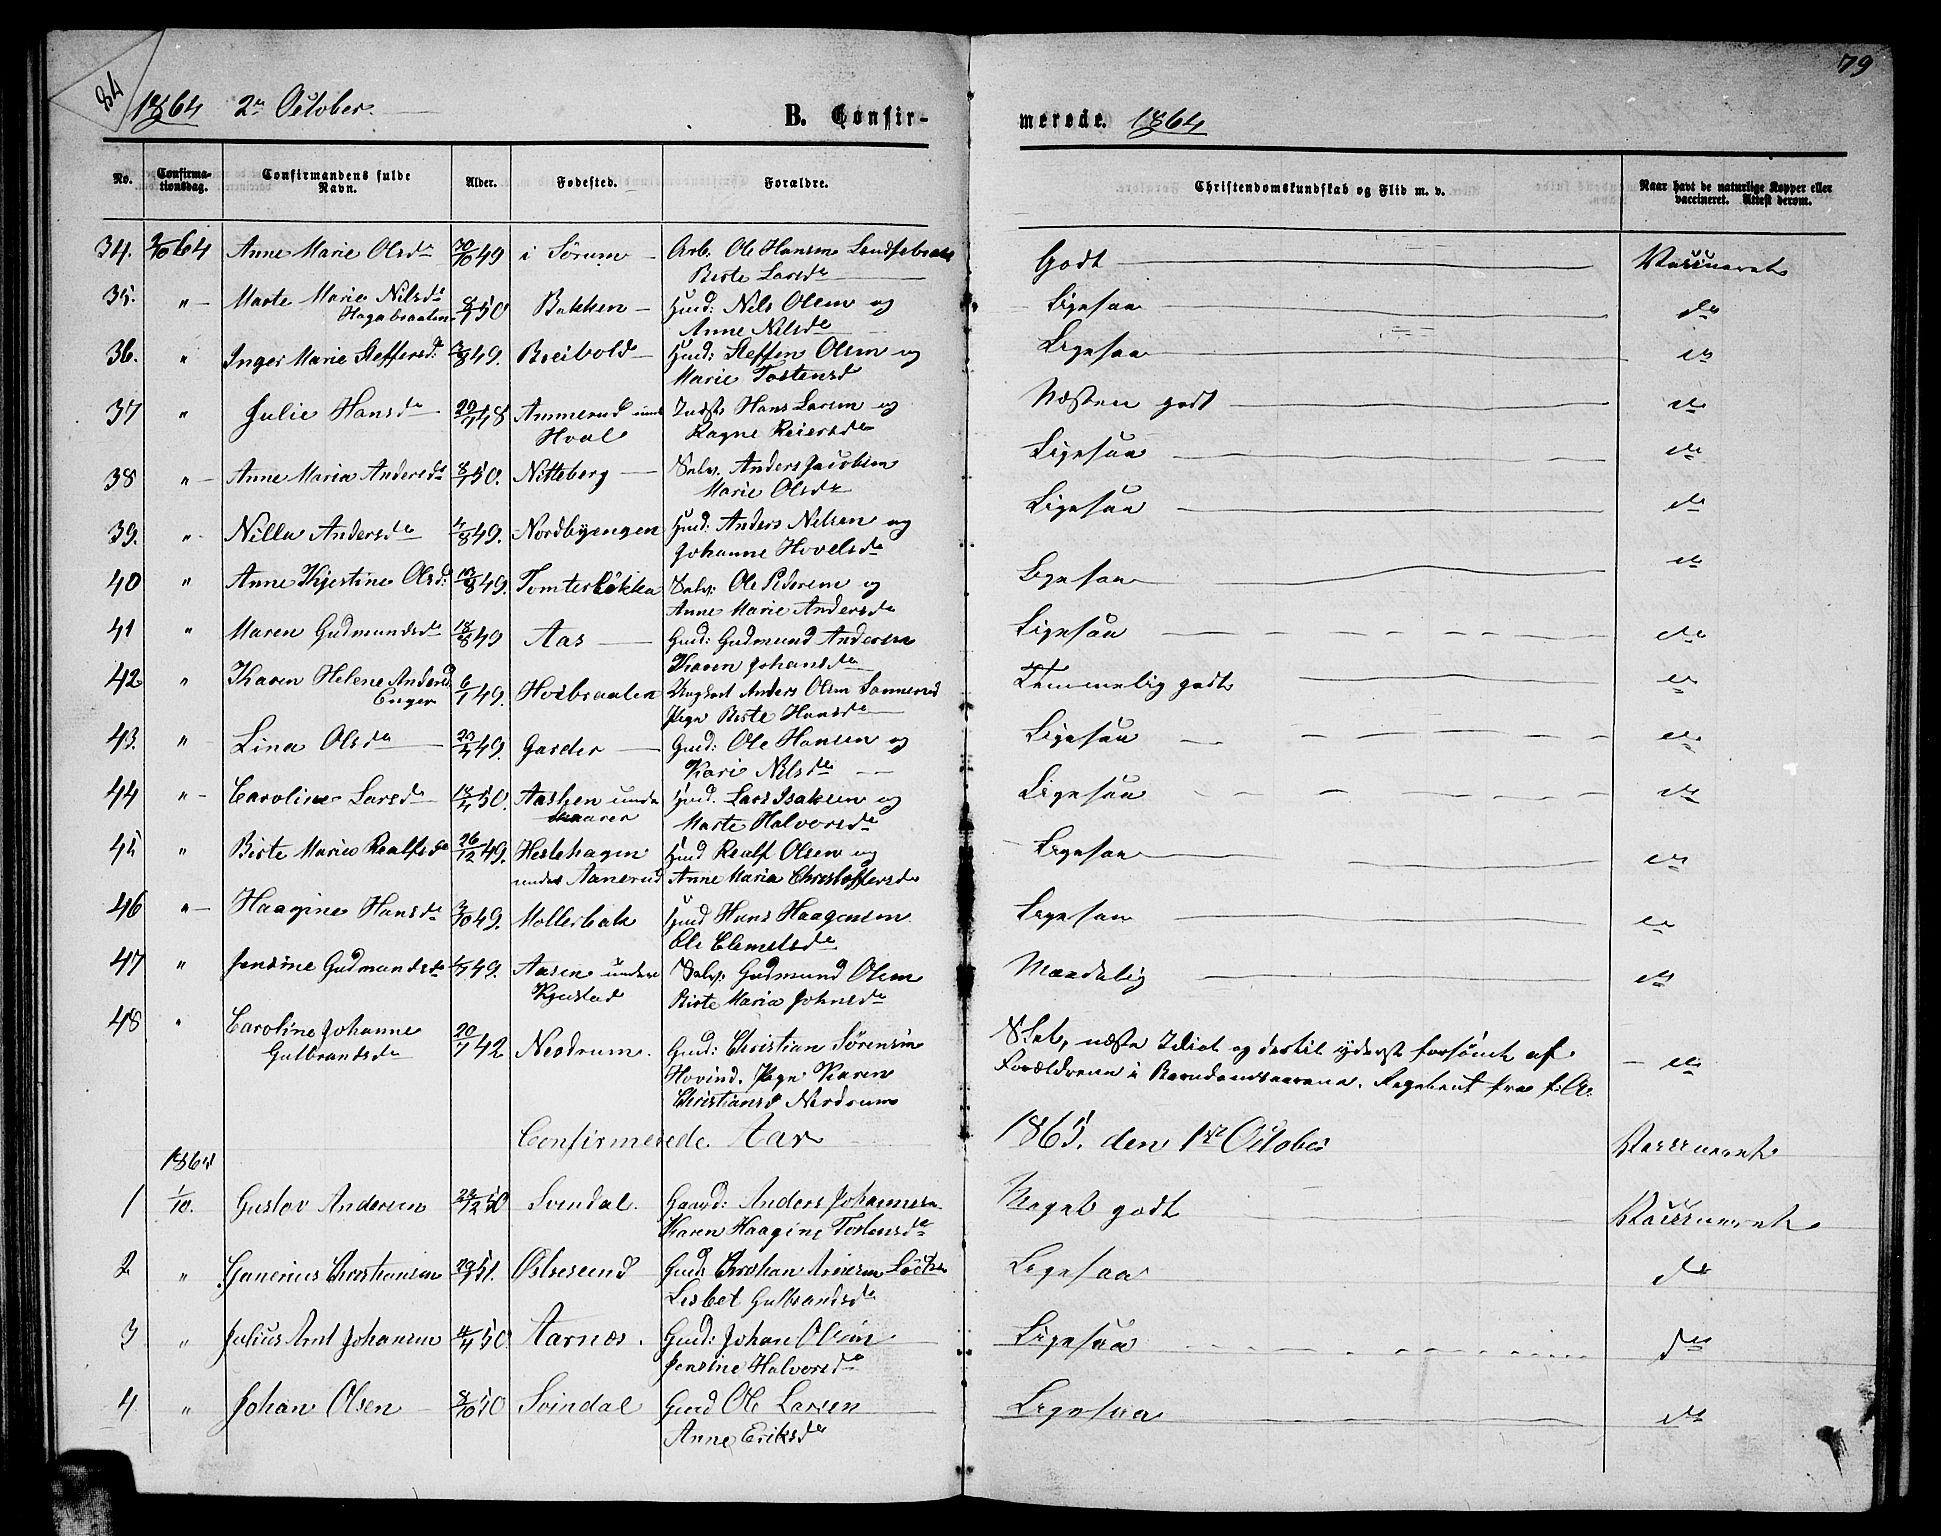 84
79
1864 2n October.
B. Confir-
merede. 1864
No.
Confirma-
tionsdag.
Confirmandens fulde
Navn.
Alder.
Fødested.
Forældre.
Christendomskundskab og Flid m. v.
Naar havt de naturlige Kopper eller
vaccineret. Attest derom.
34. 2/10 64 Anne Marie Olsda 30/10 49 i Sørum Arb. Ole Hansen
Berte Larsda
Godt Vaccineret
35. " Marte Marie Nilsda
Hagabraaten
8/1 50 Bakken Gaard: Nils Olsen og
Anne Nilsda
Ligesaa do
36. " Inger Marie Steffensd. 3/8 49. Breibold Gaard: Steffen Olsen og
Marie Tostensd
Ligesaa do
37 " Julie Hansda 20/11 48 Ammerud under
Hval
Indst. Hans Larsen og
Ragne Reiersda
Næsten godt do
38 " Anne Maria Andersda 8/1 50. Nitteberg Selv. Anders Jacobsen
Marie Olsda
Ligesaa do
39. " Nilla Andersda 4/8 49. Nordbyengen Huusd: Anders Nilsen og
Johanne Hovelsda
Ligesaa do
40 " Anne Kjerstine Olsd. 13/8 49. Tomterløkka Selv: Ole Pedersen og
Anne Marie Andersda
Ligesaa do
41 " Maren Gudmundsda 18/8 49 Aas Gaard: Gudmund Andersen
Karen Johansda
Ligesaa do
42 " Karen Helene Andersd.
Enger
6/1 49. Hvibraaten Ungkarl Anders Olsen Sannerud
Pige Berte Hansda
Temmelig godt do
43. " Lina Olsda 23/4 49. Garder Gaard: Ole Hansen og
Kari Nilsda
Ligesaa do
44 " Caroline Larsda 18/4 50. Aashen under
Skaarer
Huusd. Lars Isaksen og
Marte Halvorsda
Ligesaa do
45 " Berte Marie Roalfsda 26/12 49. Hestehagen
under Aanerud
Huusd Roalf Olsen og
Anne Maria Christoffersda
Ligesaa do
46 " Haagine Hansda 2/10 49. Mollerbak Huusd Hans Haagensen
Ole Clemetsda
Ligesaa do
47 " Jensine Gudmundsda 49. Aasen under
Kjustad
Selv. Gudmund Olsen
Berte Maria Johnsda
Maadelig do
48 " Caroline Johanne
Gulbrandsda
20/7 42 Nerdrum. Gaard: Christian Sørensen
Hovind. Pige Karen
Christiansd Nerdrum
Slet, næsten Idiot og dertil yderst forsømt af
Forældrene i Barndomsaarene.
do
Confirmerede Aar 1865. den 1ste October Vaccineret
1865
1 1/10. Gustav Andersen 22/12 50 Svindal. Gaard: Anders Johannesen
Karen Haagine Tostensda
Meget godt Vaccineret
2 " Gunerius Christiansen 29/1 51. Østresund Gaard: Christian
Lisbet Gulbrandsda
Ligesaa do
3 " Julius Arnt Johansen 11/4 50 Aarnes. Gaard: Johan Olsen
Jensine Halvorsda
Ligesaa do
4 " Johan Olsen 8/10 50 Svindal Gaard Ole Larsen
Anne Eriksda
Ligesaa do